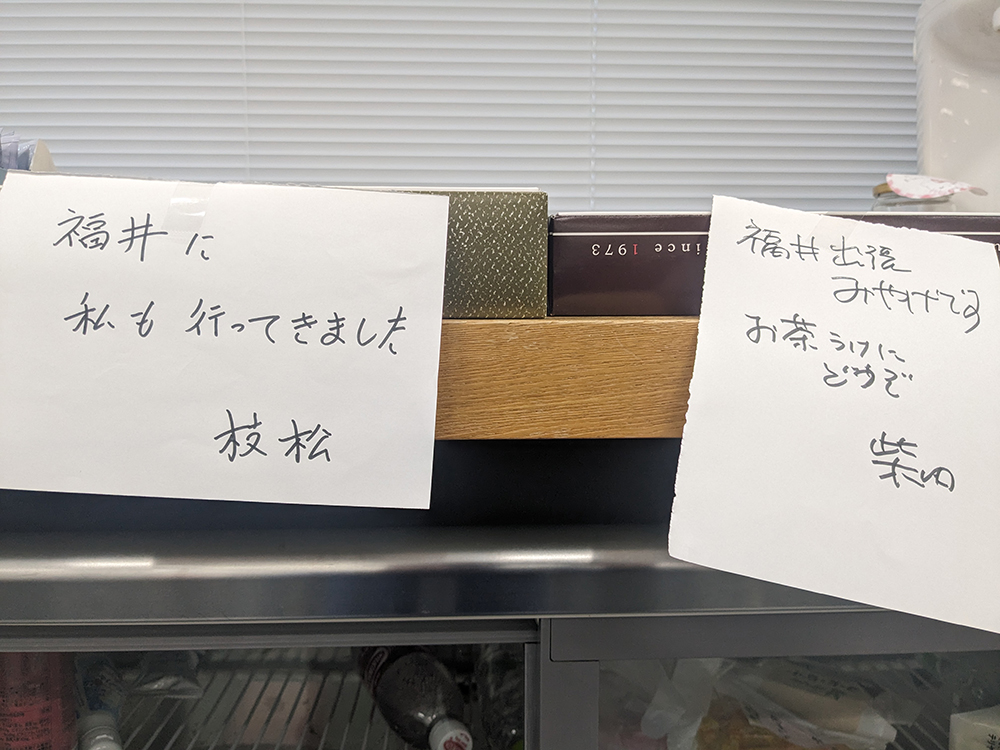 福井に
私も 行ってきました
枝松
since 1973
福井出張
みやげです
お茶うけに
どうぞ
柴田